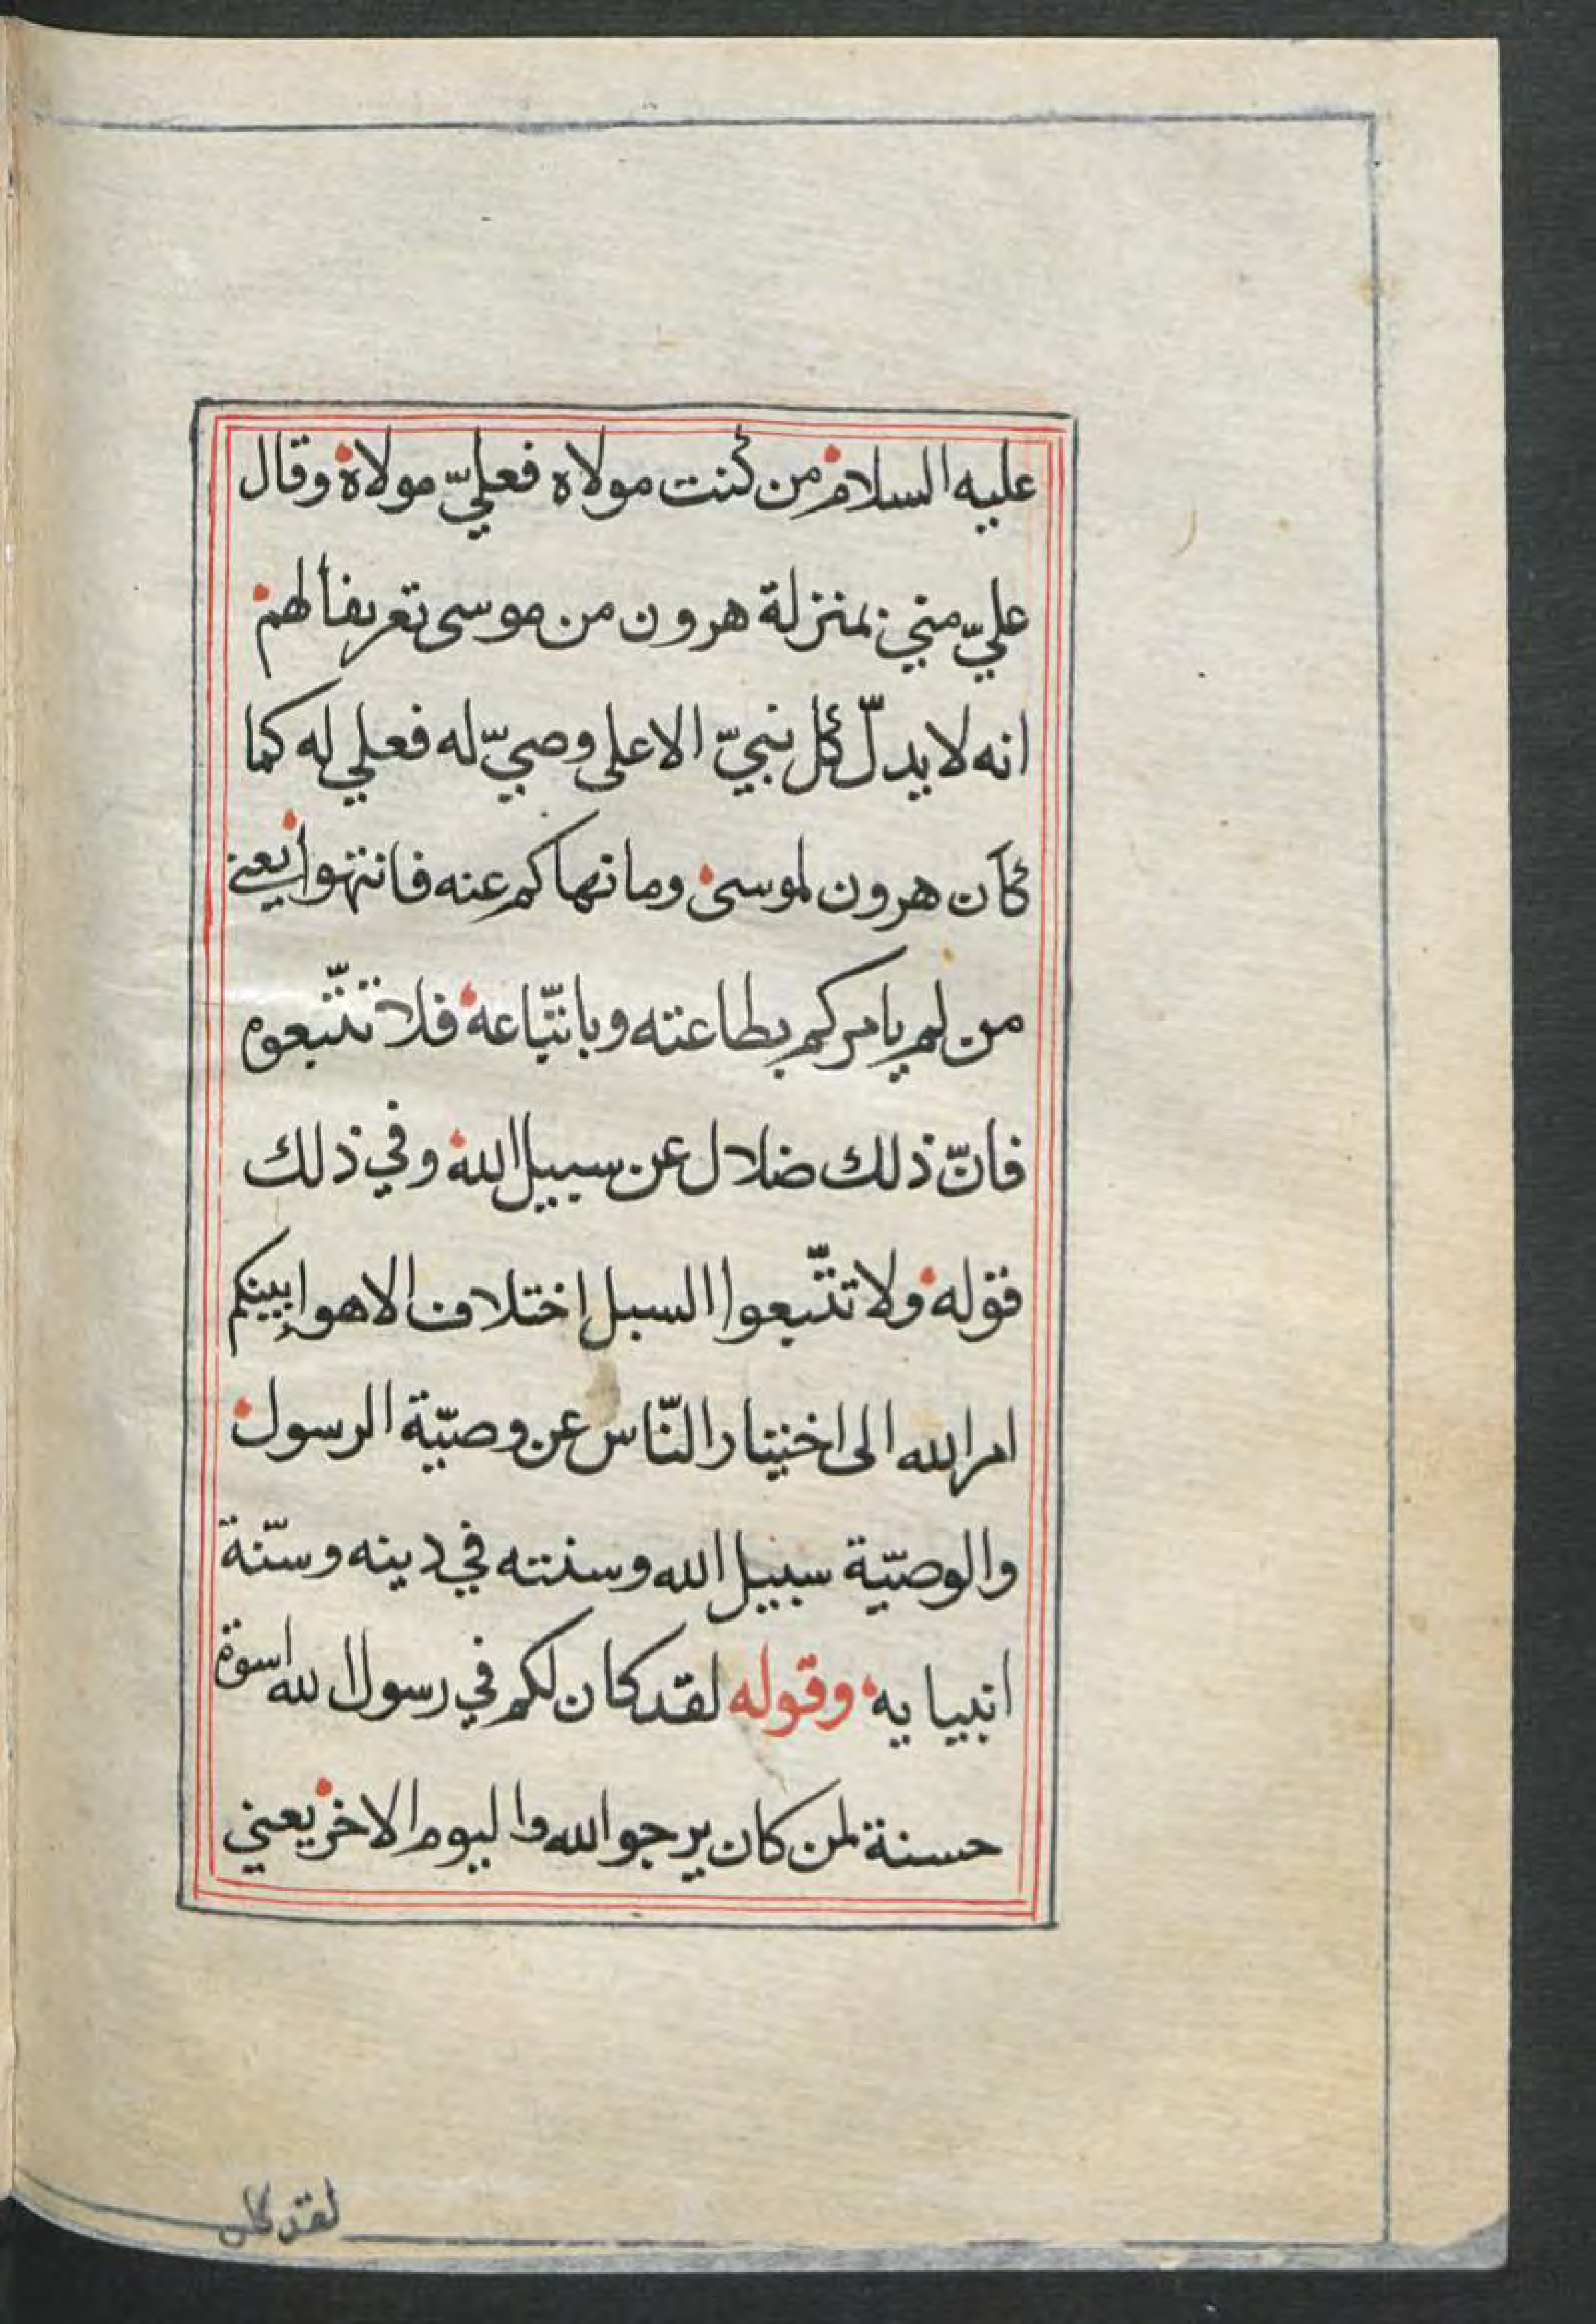 عليه السلام من كنت مولاه فعليّ مولاه وقال
عليّ منّي بمنزلة هرون من موسى تعريفا لهم
انه لا يدلّ كل نبيّ الا على وصيّ له فعلي له كما
كان هرون لموسى وما نهاكم عنه فانتهوا يعني
من لم يامركم بطاعته وباتّباعه فلا تتّبعوه
فانّ ذلك ضلال عن سبيل الله وفي ذلك
قوله ولا تتّبعوا السبل اختلاف الاهواء بينكم
امر الله الى اختيار النّاس عن وصيّة الرسول
والوصيّة سبيل الله وسنته في دينه وسنّة
انبيايه وقوله لقد كان لكم في رسول الله اسوة
حسنة لمن كان يرجو الله واليوم الاخر يعني
لقد كان